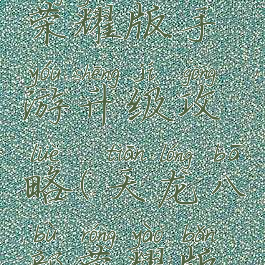 荣耀版手
yóu shēng jí gōng
游升级攻
lüè tiān lóng bā
略(天龙八
bù róng yào bǎn
部荣耀版